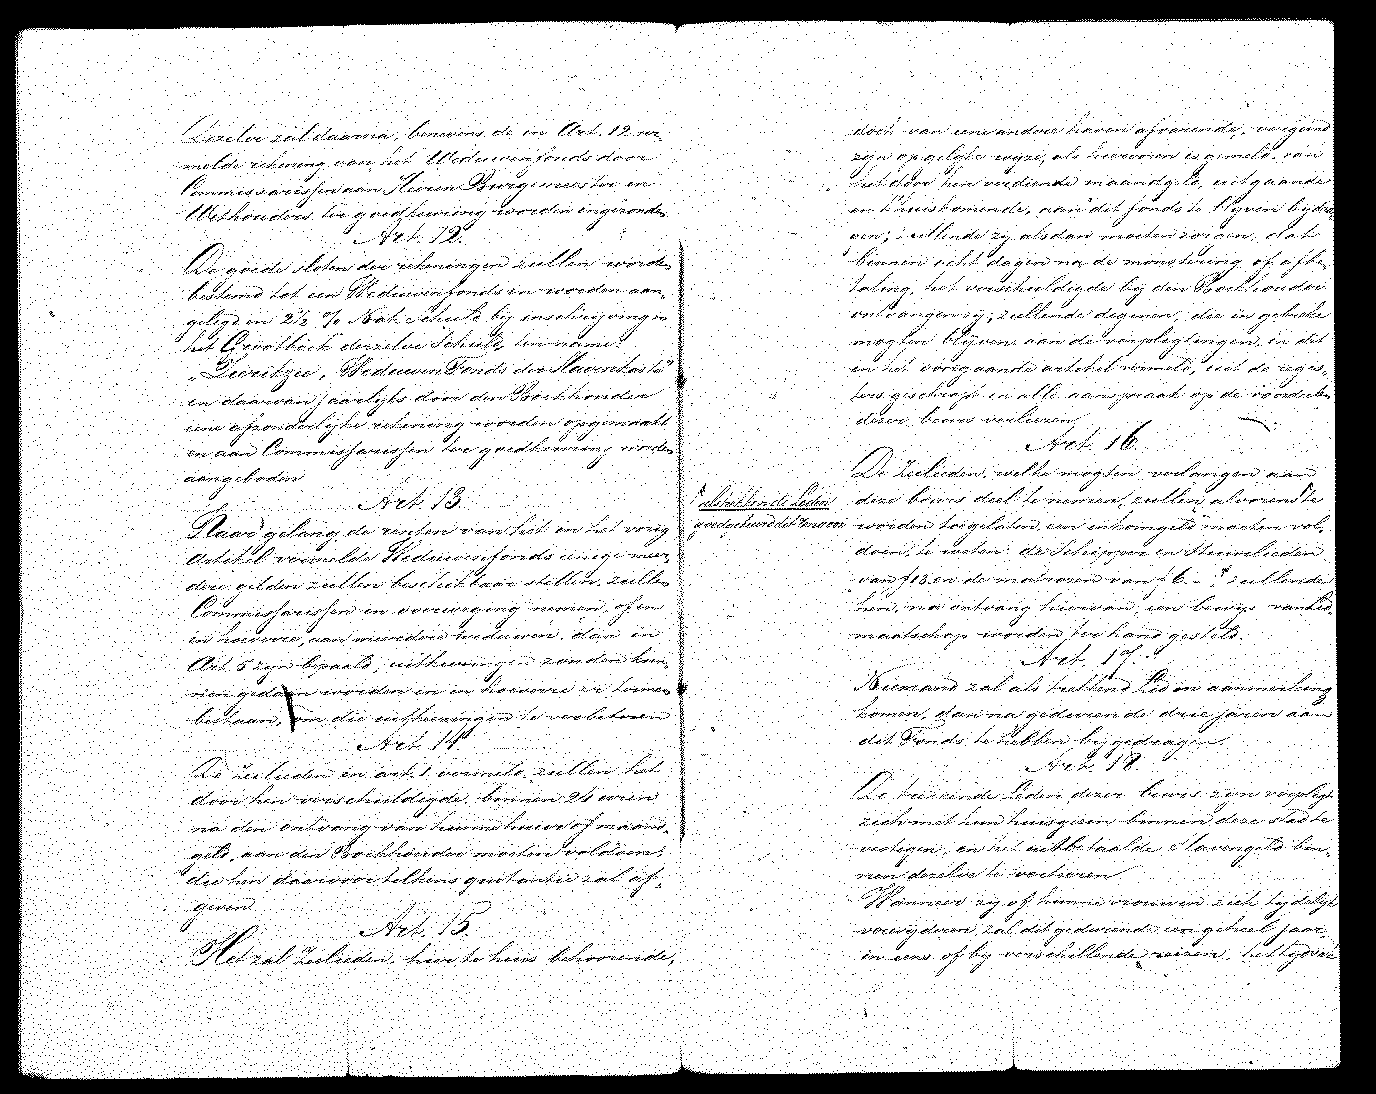 Dezelve zal daarna, benevens de in Art. 12 ver-
melde rekening van het Weduwenfonds door
Commissarissen aan Heeren Burgemeester en
Wethouders ter goedkeuring worden ingezonden.
Art. 12.
De goede sloten der rekeningen zullen worden
bestemd tot een Weduwenfonds en worden aan-
gelegd in 2½ % Nat. Schuld bij inschrijving in
het Grootboek derzelve Schuld, ten name:
„Zierikzee, Weduwen Fonds der Havenkaste"
en daarvan jaarlijks door den Boekhouder
eene afzonderlijke rekening worden opgemaakt
en aan Commissarissen ter goedkeuring worden
aangeboden
Art. 13.
Naar gelang de renten van het in het vorig
Artikel vermelde Weduwenfonds eenige meer-
dere gelden zullen beschikbaar stellen, zullen
Commissarissen in overweging nemen, of en
in hoeverre, aan meerdere weduwen, dan in
Art. 5 zijn bepaald, uitkeeringen zouden kun-
nen gedaan worden en in hoeverre er termen
bestaan, om die uitkeeringen te verbeteren
Art. 14
De Zeelieden in art. 1 vermeld, zullen het
door hen verschuldigde, binnen 24 uren
na den ontvang van hunne huur of maand-
geld, aan den Boekhouder moeten voldoen,
die hen daarvoor telkens quitantie zal af-
geven
Art. 15.
Het zal Zeelieden, hier te huis behoorende,
doch van eene andere haven afvarende, vergund
zijn op gelijke wijze, als hiervoren is gemeld, van
het door hen verdiende maandgeld, uitgaande
en t'huiskomende, aan dit fonds te blijven bijdra-
gen; zullende zij alsdan moeten zorgen, dat
binnen acht dagen na de monstering of afbe-
taling, het verschuldigde bij den Boekhouder
ontvangen zij; zullende degenen, die in gebreke
mogten blijven aan de verpligtingen, in dit
en het voorgaande artikel vermeld, uit de regis-
ters geschrapt en alle aanspraak op de voordeelen
dezer beurs verliezen
Art. 16.
De Zeelieden, welke mogten verlangen aan
deze beurs deel te nemen, zullen alvorens te
worden toegelaten, een inkomgeld moeten vol-
doen, te weten: de Schippers en Stuurlieden
van ƒ13 en de matrozen van ƒ6.- zullende
hen, na ontvang hiervan, een bewijs van Lid-
maatschap worden ter hand gesteld.
trekkende Leden
goedgekeurd dit
Art. 17.
Niemand zal als trekkend Lid in aanmerking
komen, dan na gedurende drie jaren aan
dit Fonds te hebben bijgedragen.
Art. 18.
De trekkende Leden dezer beurs zijn verpligt
zich met hun huisgezin binnen deze stad te
vestigen, en het uitbetaalde Havengeld bin-
nen dezelve te verteeren
Wanneer zij of hunne vrouwen zich tijdelijk
verwijderen, zal dit gedurende een geheel jaar,
in eens of bij verschillende reizen, het tijdvak